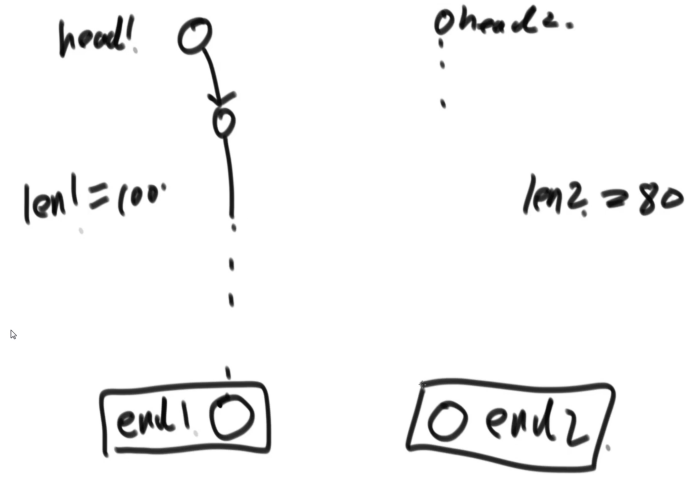 head1
head2.
len1=100
len2=80
end1
end2